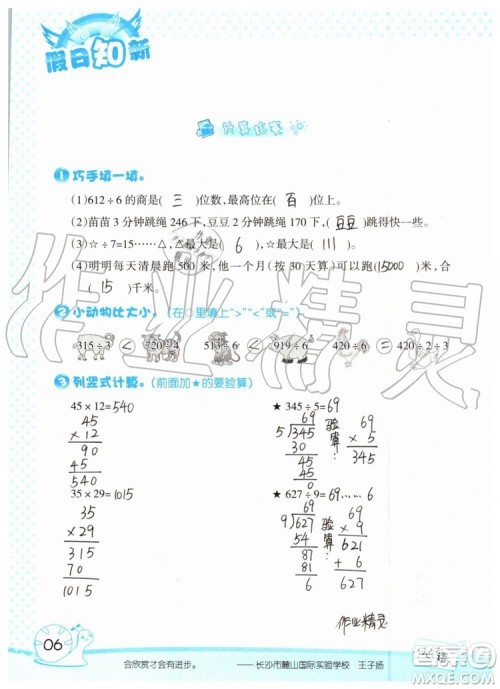 假日知新
计算比赛
1 巧手填一填。
(1)612÷6的商是( 三 )位数,最高位在( 百 )位上。
(2)苗苗3分钟跳绳246下,豆豆2分钟跳绳170下,( 豆豆 )跳得快一些。
(3)☆÷7=15……△,△最大是( 6 ),☆最大是( 111 )。
(4)明明每天清晨跑500米,他一个月(按30天算)可以跑(15000)米,合
( 15 )千米。
2 小动物比大小。(在○里填上“>”“<”或“=”。)
315÷3 < 720÷4 513÷9 < 919÷6 420÷6 = 420÷2÷3
3 列竖式计算。(前面加★的要验算)
45×12=540 ★345÷5=69
45
× 12
90
45
540
69
5 345
30
45
45
0
验算:
69
× 5
345
35×29=1015 ★627÷9=69……6
35
× 29
315
70
1015
69
9 627
54
87
81
6
验算:
69
× 9
621
+ 6
627
作业精灵
06
会欣赏才会有进步。 ——长沙市麓山国际实验学校 王子扬
作业精灵
MXQE.COM